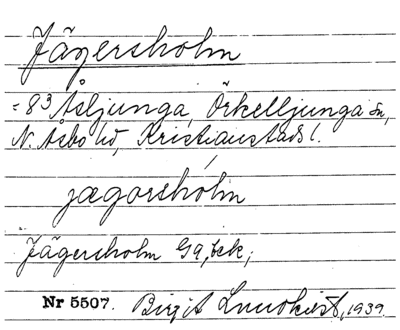 Jägersholm
= 8³ Åsljunga, Örkelljunga sn,
N. Åsbo hd, Kristianstads l.
jægorshólm
Jägersholm Ga, bek;
Nr 5507. Birgit Lundkvist, 1939.